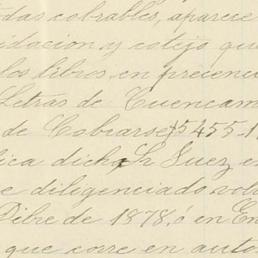 das cobrables, aparece
idacion y cotejo que
los libros en presencia
Letras de Cuencam
de Cobrarse $5455.1
lica dicho Sr Juez en
e diligenciado vol
Dibre de 1878, ó en En
que corre en autos